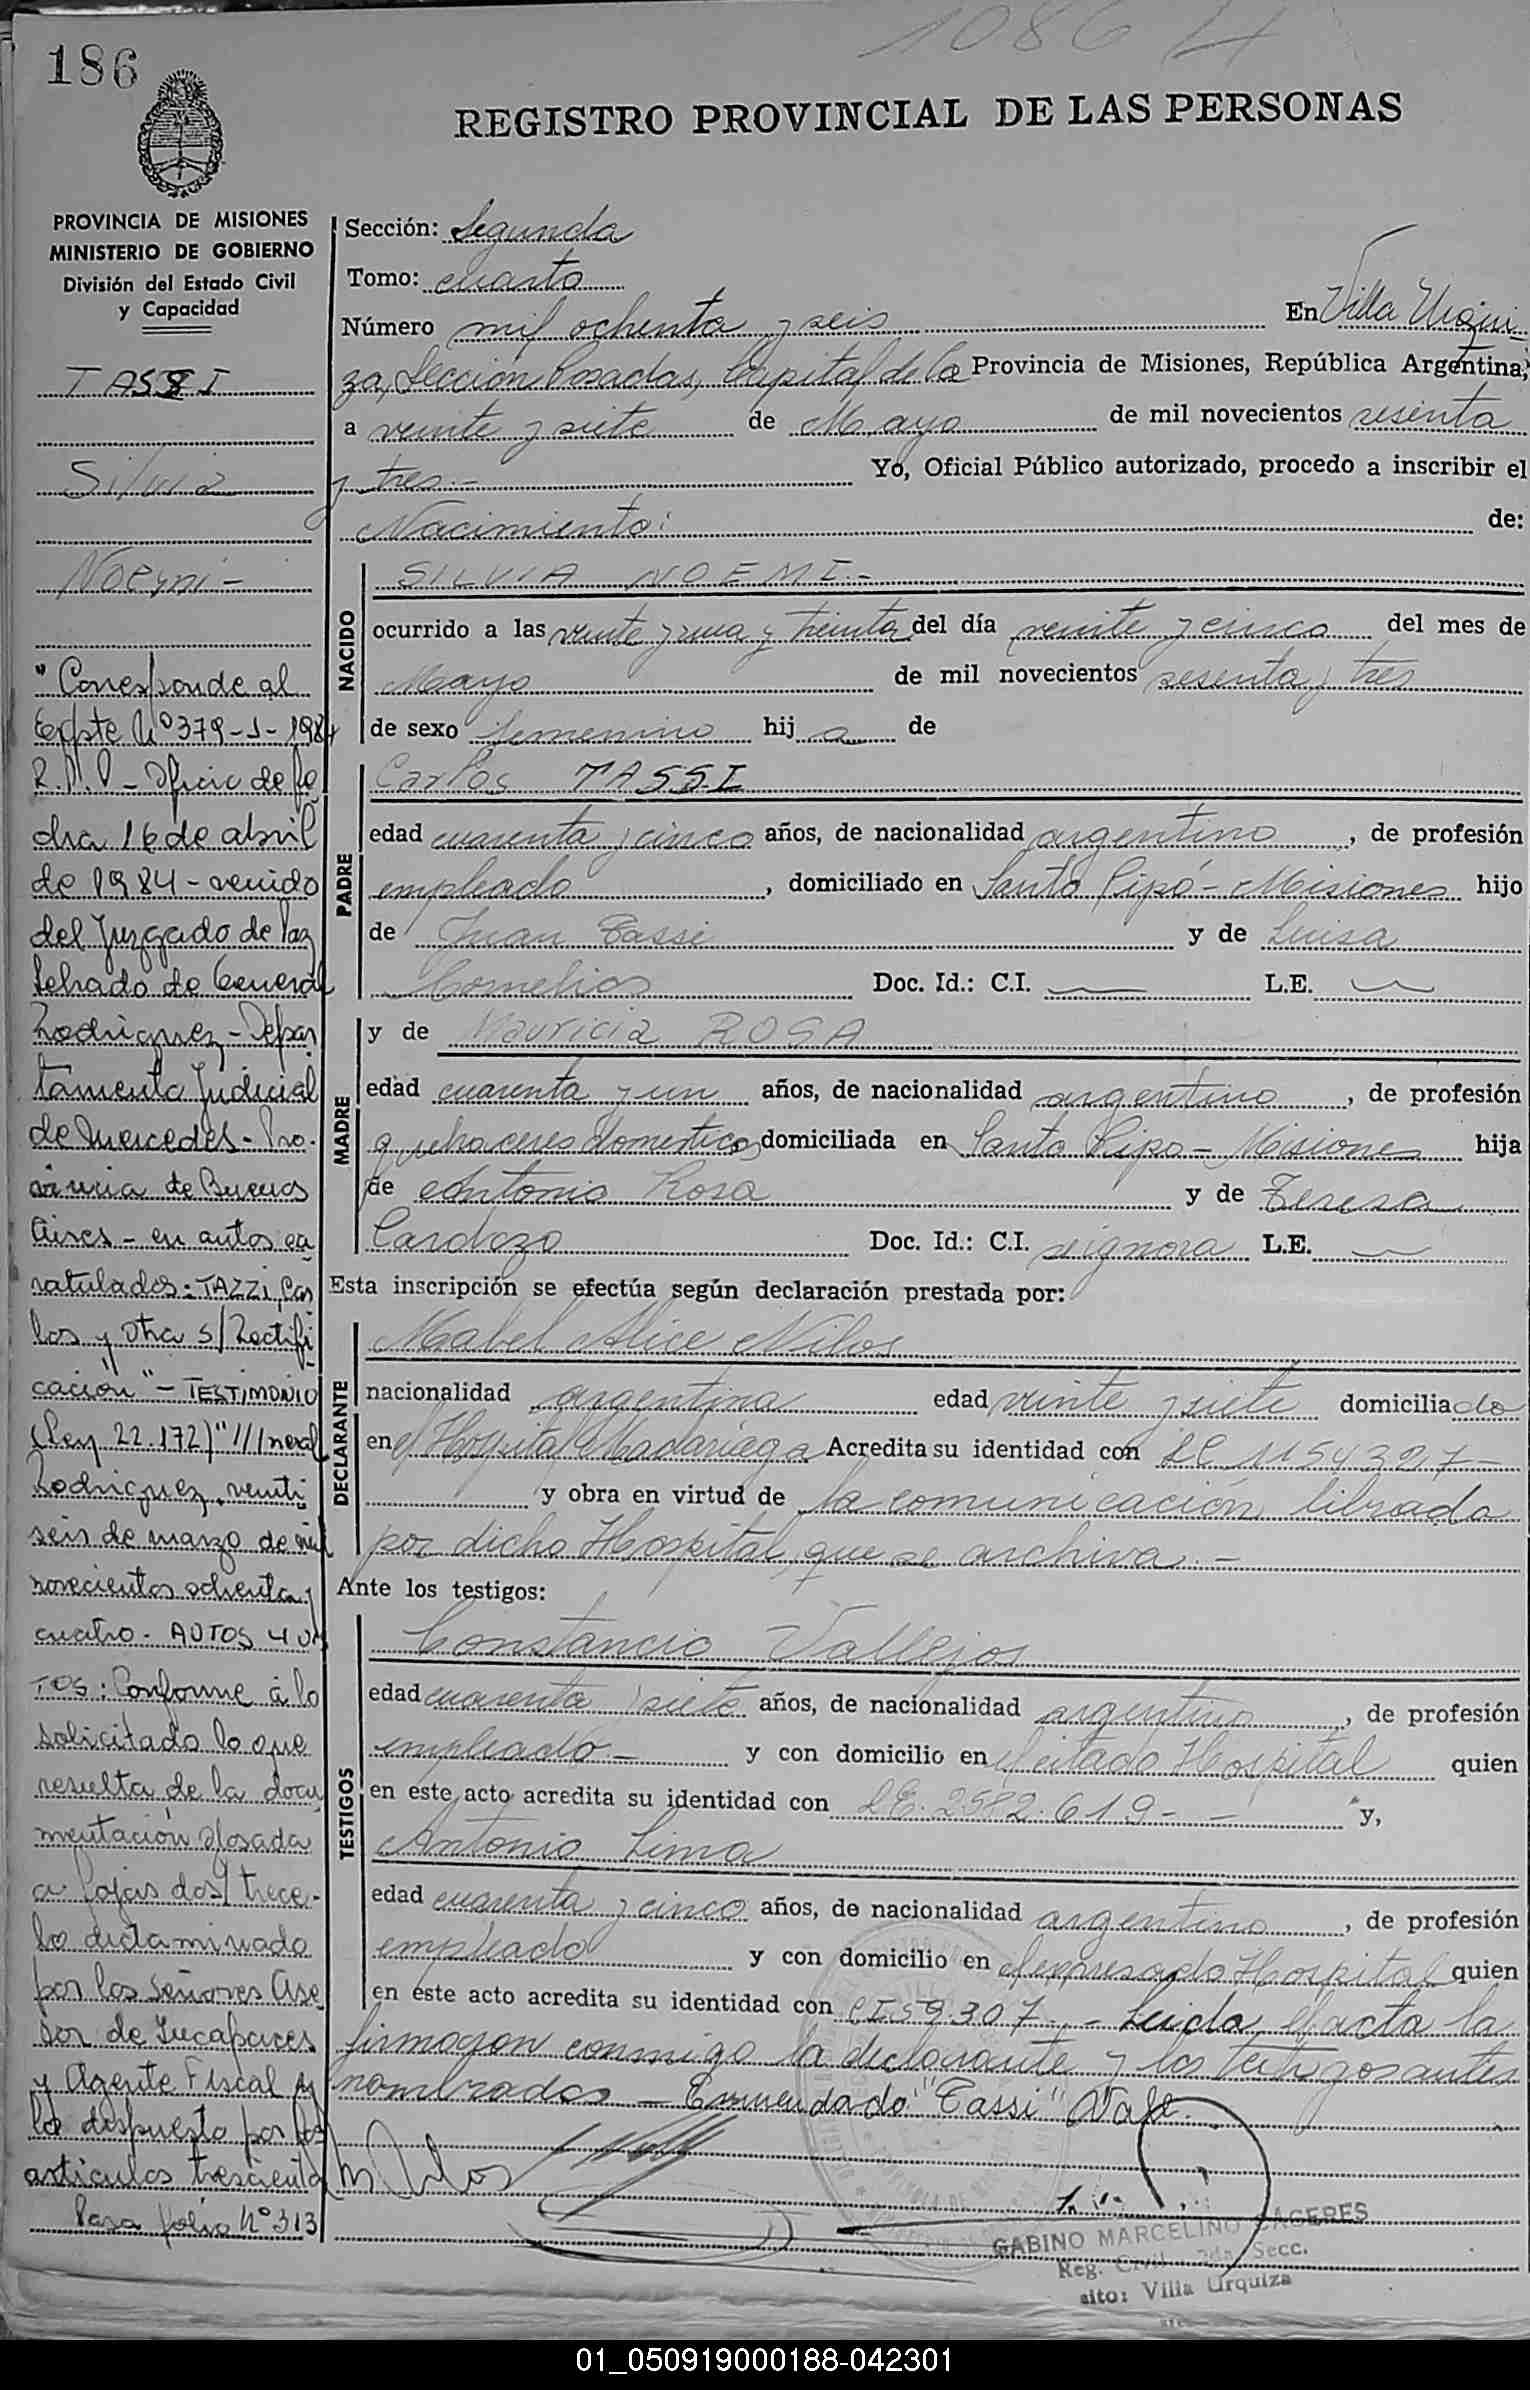 1086 4
186
REGISTRO PROVINCIAL DE LAS PERSONAS
PROVINCIA DE MISIONES
MINISTERIO DE GOBIERNO
División del Estado Civil
y Capacidad
TASSI
Silvia
Noemi -
"Corresponde al
Expte Nº 379-J-1984
R.P.P - Oficio de fe
cha 16 de abril
de 1984 - venido
del Juzgado de Paz
Letrado de General
Rodriguez - Depar
tamento Judicial
de Mercedes - Pro-
vincia de Buenos
Aires - en autos ca
ratulados: TAZZi, Car
los y otra s/ Rectifi
cación" - TESTIMONIO
(Ley 22.172)" ///neral
Rodriguez, venti
seis de marzo de mil
novecientos ochenta y
cuatro - AUTOS y VIS
TOS: Conforme a lo
solicitado lo que
resulta de la docu
mentación glosada
a fojas dos/ trece-
lo dictaminado
por los Señores Ase
sor de Incapaces
y Agente Fiscal y
lo dispuesto por los
artículos trescienta
Pasa folio Nº 313
Sección: Segunda
Tomo: cuarto
Número mil ochenta y seis En Villa Urqui
za, Sección Posadas, Capital de la Provincia de Misiones, República Argentina,
a veinte y siete de Mayo de mil novecientos sesenta
y tres.- Yo, Oficial Público autorizado, procedo a inscribir el
Nacimiento: de:
NACIDO
SILVIA NOEMI.-
ocurrido a las veinte y una y treinta del día veinte y cinco del mes de
Mayo de mil novecientos sesenta y tres
de sexo femenino hij a de
PADRE
Carlos TASSI
edad cuarenta y cinco años, de nacionalidad argentino, de profesión
empleado, domiciliado en Santo Pipó - Misiones hijo
de Juan Tassi y de Luisa
Cornelios Doc. Id.: C.I. L.E.
MADRE
y de Mauricia ROSA
edad cuarenta y un años, de nacionalidad argentina, de profesión
quehaceres domesticos domiciliada en Santo Pipo - Misiones hija
de Antonio Rosa y de Teresa
Cardozo Doc. Id.: C.I. se ignora L.E.
Esta inscripción se efectúa según declaración prestada por:
DECLARANTE
Mabel Alice Nilos
nacionalidad argentina edad veinte y siete domiciliado
en el Hospital Madariaga Acredita su identidad con LC 1154327-
y obra en virtud de la comunicación librada
por dicho Hospital, que se archiva.-
Ante los testigos:
TESTIGOS
Constancio Vallejos
edad cuarenta y siete años, de nacionalidad argentino, de profesión
empleado.- y con domicilio en el citado Hospital quien
en este acto acredita su identidad con LE. 2582.619.- - y,
Antonio Lima
edad cuarenta y cinco años, de nacionalidad argentino, de profesión
empleado y con domicilio en el expresado Hospital quien
en este acto acredita su identidad con CI 59.307 - Leida el acta la
firmaron conmigo la declarante y los testigos antes
nombrados - Enmendado "Tassi" Vale.
GABINO MARCELINO CACERES
Reg. Civil 2da. Secc.
sito: Villa Urquiza
01_050919000188-042301